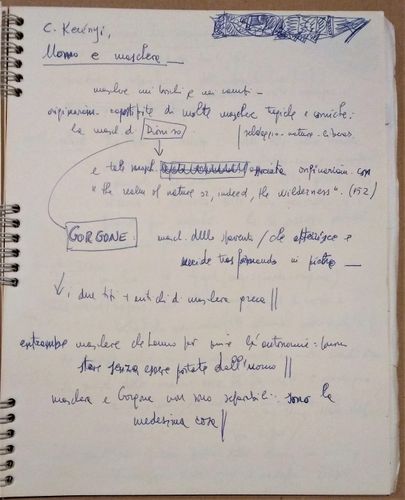 C. Kerényi,
Uomo e maschera _
maschere nei boschi e nei campi -
originariam. capostipite di molte maschere tragiche e comiche:
la masch. di Dioniso
selvaggio - natura
e tale masch. associata originariam. con
"the realm of nature or, indeed, the wilderness". (152)
GORGONE. masch. dello spavento / che atterrisce e
uccide trasformando in pietra _
i due tipi + antichi di maschera greca ||
entrambe maschere che hanno per
stare senza essere portate dall'uomo ||
maschera e Gorgone non sono separabili: sono la
medesima cosa ||